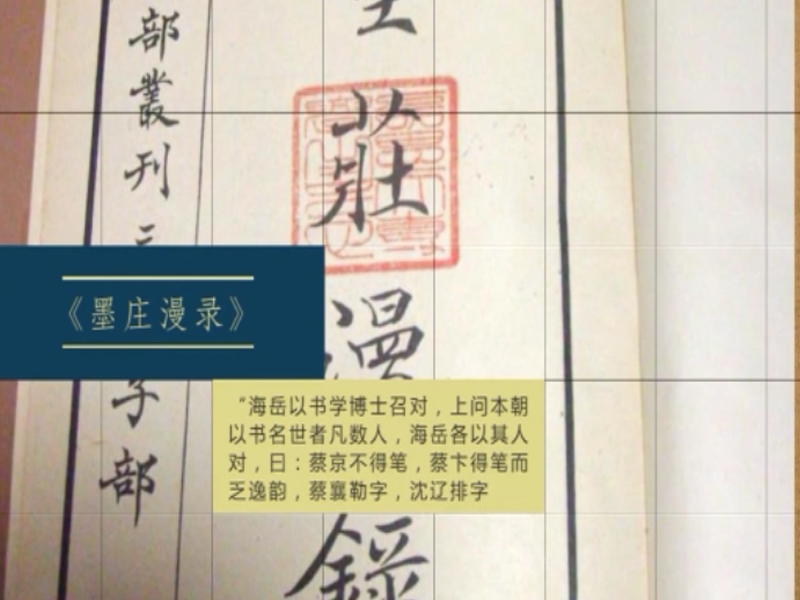 部叢刊三
子部
莊漫錄
《墨庄漫录》
“海岳以书学博士召对，上问本朝
以书名世者凡数人，海岳各以其人
对，日：蔡京不得笔，蔡卞得笔而
乏逸韵，蔡襄勒字，沈辽排字